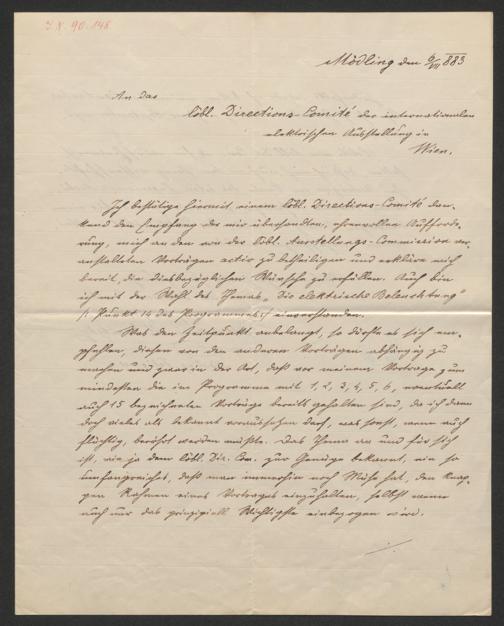 I.N. 90.148
Mödling den 9/VII 883
An das
löbl. Directions-Comité der internationalen
elektrischen Ausstellung in
Wien.
Ich bestätige hiermit einem löbl. Directions-Comité dan-
kend den Empfang der mir übersandten, ehrenvollen Aufforde-
rung, mich an den von der löbl. Ausstellungs-Commission ver-
anstalteten Vorträgen activ zu betheiligen und erkläre mich
bereit, die diesbezüglichen Wünsche zu erfüllen. Auch bin
ich mit der Wahl des Themas „Die elektrische Beleuchtung“
(Punkt 14 des Programmes) einverstanden.
Was den Zeitpunkt anbelangt, so dürfte es sich em-
pfehlen, diesen von den anderen Vorträgen abhängig zu
machen und zwar in der Art, daß vor meinem Vortrage zum
mindesten die im Programme mit 1, 2, 3, 4, 5, 6, eventuell
auch 15 bezeichneten Vorträge bereits gehalten sind, da ich dann
doch vieles als bekannt voraussetzen darf, was sonst, wenn auch
flüchtig, berührt werden müßte. Das Thema an und für sich
ist, wie ja dem löbl. Dir. Com. zur Genüge bekannt, ein so
umfangreiches, daß man immerhin noch Mühe hat, den knap-
pen Rahmen eines Vortrages einzuhalten, selbst wenn
auch nur das prinzipiell Wichtigste einbezogen wird.